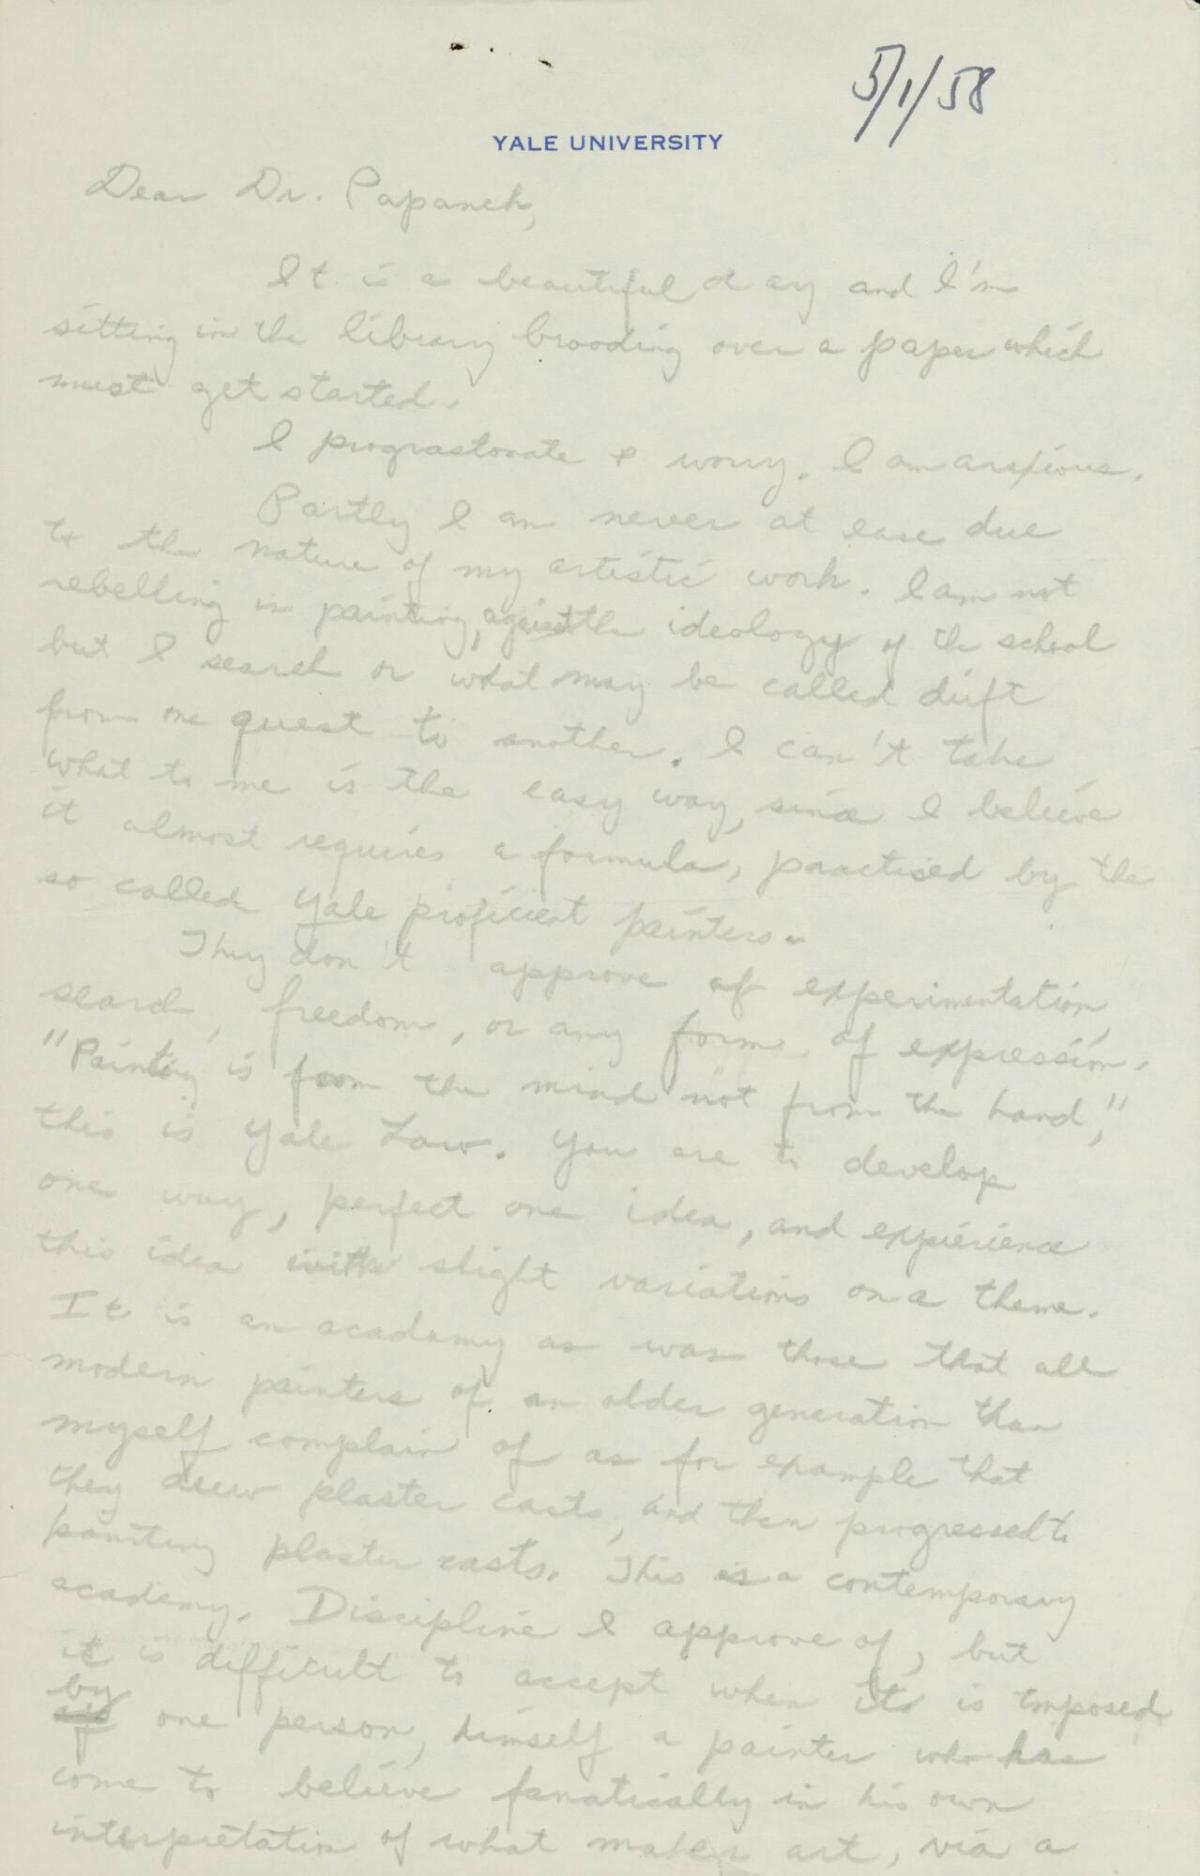 5/1/58
YALE UNIVERSITY
Dear Dr. Papanek,
It is a beautiful day and I'm
sitting in the library brooding over a paper which
must get started.
I prograstonate & worry. I am anxious.
Partly I am never at ease due
to the nature of my artistic work. I am not
rebelling in painting, against the ideology of the school
but I search or what may be called drift
from one quest to another. I can't take
what to me is the easy way, since I believe
it almost requires a formula, practised by the
so called Yale proficient painters.
They don't approve of experimentation,
search, freedom, or any form of expression.
"Painting is from the mind not from the hand,"
this is Yale Law. You are to develop
one way, perfect one idea, and experience
this idea with slight variations on a theme.
It is an academy as was those that all
modern painters of an older generation than
myself complain of as for example that
they drew plaster casts, and then progressed to
painting plaster casts. This is a contemporary
academy. Discipline I approve of, but
it is difficult to accept when its is imposed
by of one person, himself a painter who has
come to believe fanatically in his own
interpretation of what makes art, via a